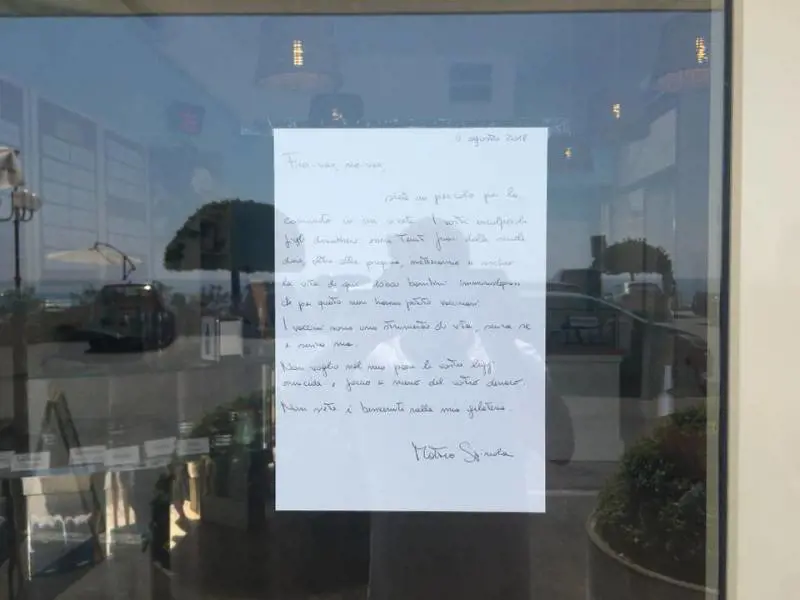 9 agosto 2018
Free-vax, no-vax,
siete un pericolo per la
comunità in cui vivete. I vostri incolpevoli
figli dovrebbero essere tenuti fuori dalle scuole
dove, oltre alla propria, metteranno a rischio
la vita di quei bambini immunodepressi
che per questo non hanno potuto vaccinarsi.
I vaccini sono uno strumento di vita, senza se
e senza ma.
Non voglio nel mio paese le vostre leggi
omicide e faccio a meno del vostro denaro.
Non siete i benvenuti nella mia gelateria.
Matteo Spinola